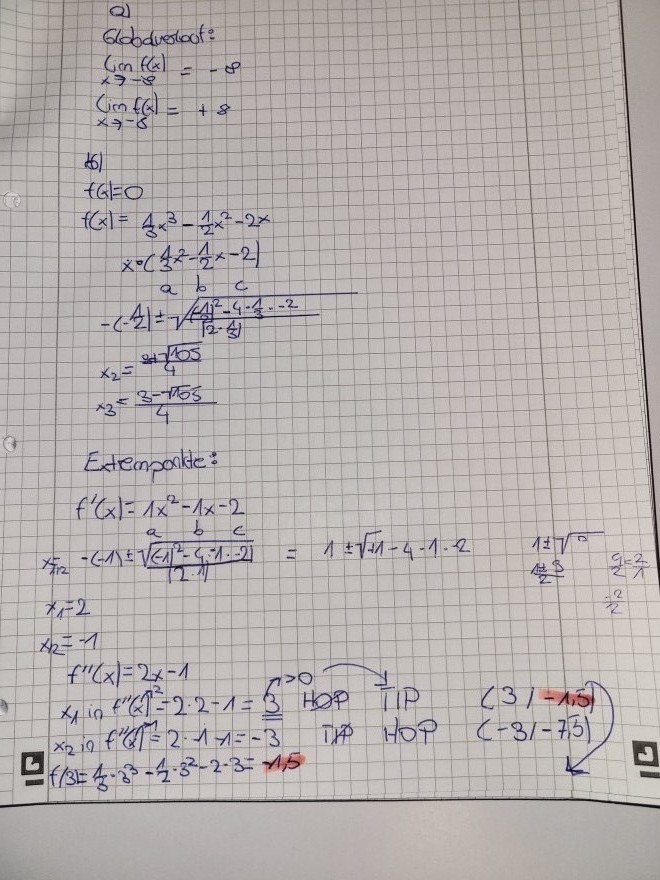 a)
Globalverlauf:
lim f(x) = - ∞
x→-∞
lim f(x) = + ∞
x→-∞
b)
f(x)=0
f(x) = 1/3x³ - 1/2x² - 2x
x·(1/3x² - 1/2x - 2)
a b c
-(-1/2) ± √(-1/2)² - 4·1/3·-2 / (2·1/3)
x₂ = 3+√105 / 4
x₃ = 3-√105 / 4
Extempunkte:
f'(x) = 1x² - 1x - 2
a b c
x₁,₂ = -(-1) ± √(-1)² - 4·1·-2 / (2·1) = 1 ± √-1 - 4·1·-2 1 ± √9
1±3/2
x₁ = 2
x₂ = -1
f''(x) = 2x - 1
>0
x₁ in f''(x) = 2·2-1 = 3 HOP TIP (3/-1,5)
x₂ in f''(x) = 2·-1-1 = -3 TIP HOP (-3/-7,5)
f(3) = 1/3·3³ - 1/2·3² - 2·3 = -1,5